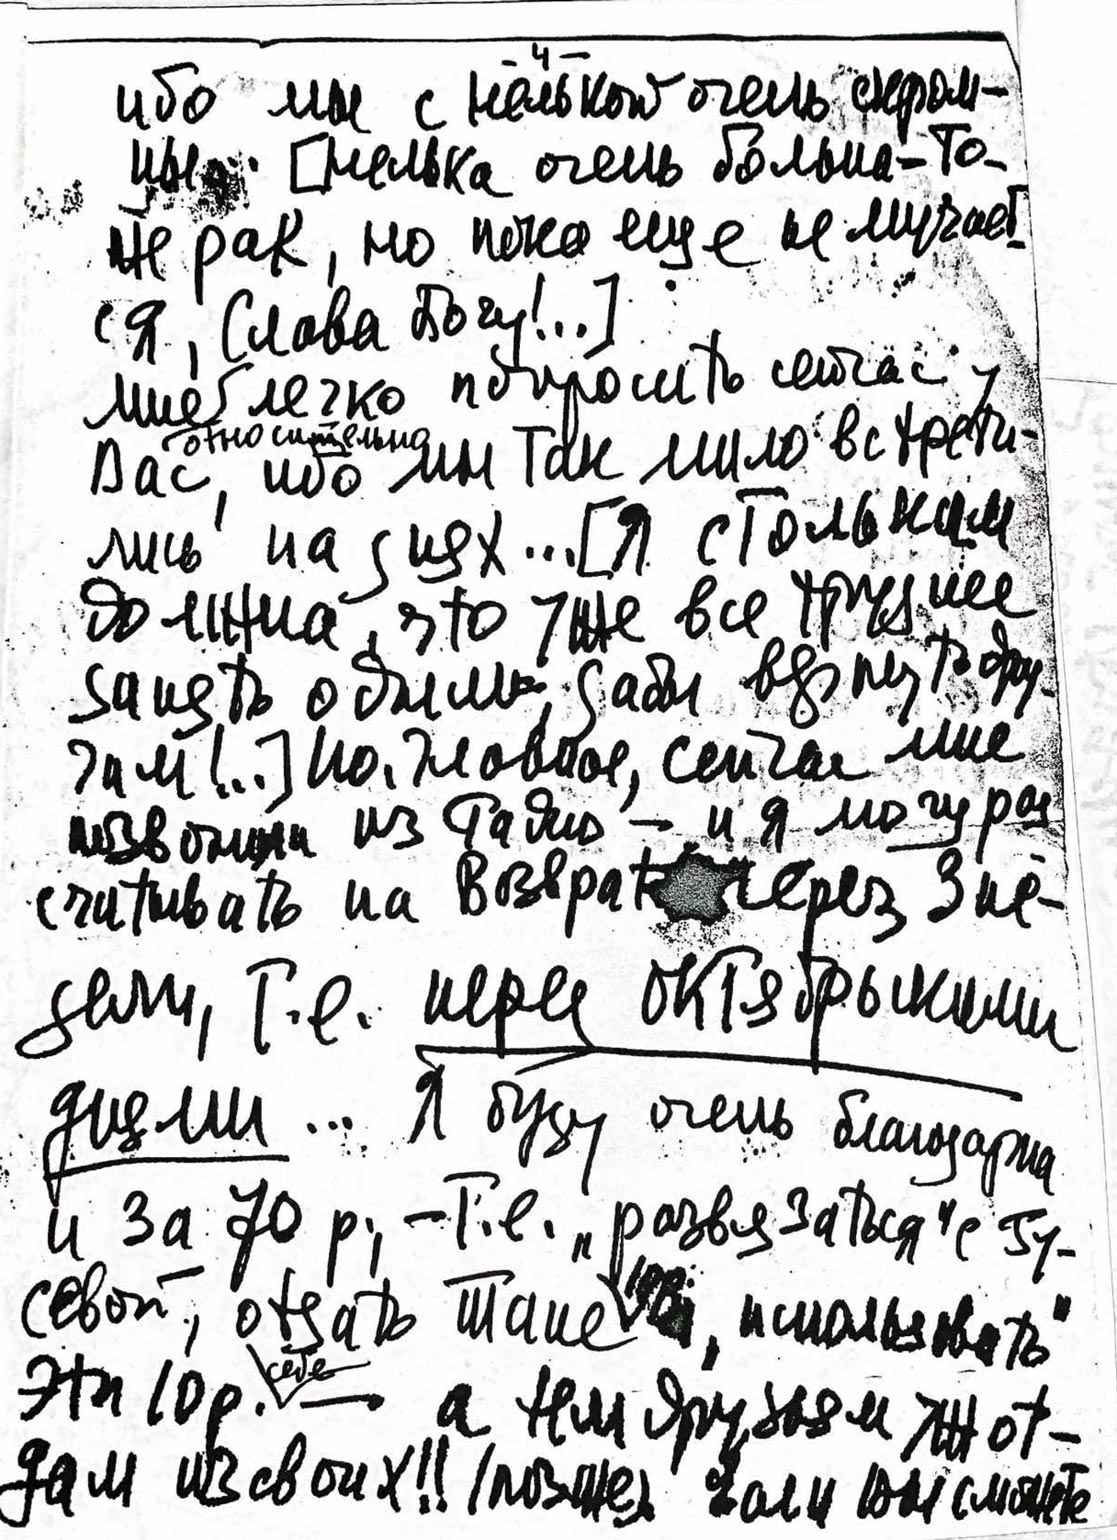 - 4 -
ибо мы с Нелькой очень скром-
ны... [Нелька очень больна – то-
же рак, но пока еще не мучает-
ся, Слава Богу!...]
Мне легко попросить сейчас у
относительно
Вас, ибо мы так мило встрети-
лись на днях... [Я стольким
должна, что уже все труднее
занять одним, дабы вернуть дру-
гим!..] Но, главное, сейчас мне
позвонили из Радио – и я могу рас
считывать на возврат через 3 не-
дели, т.е. перед октябрьскими
днями... Я буду очень благодарна
и за 70 р., – т.е. „развязаться" с Гу-
севой, отдать Тане 100, „использовать"
себе
эти 10 р. – а тем друзьям уж от-
дам из своих!! /позже/ Если Вы сможете